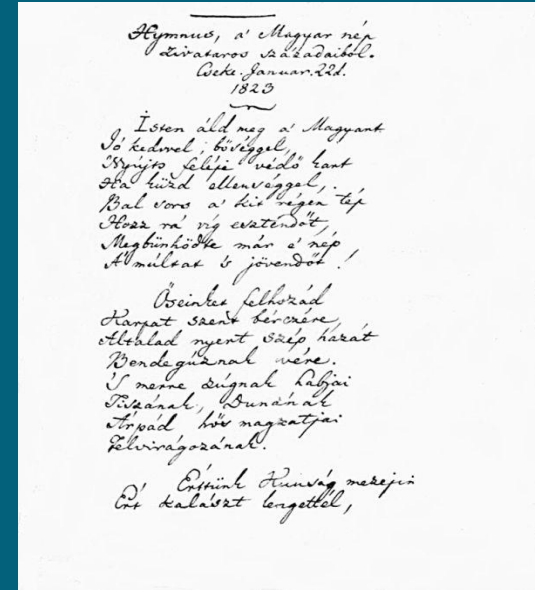 Hymnus, a' Magyar nép
zivataros századaiból.
Cseke. Januar. 22d.
1823
Isten áld meg a' Magyart
Jó kedvvel, bőséggel,
Nyújts feléje védő kart
Ha küzd ellenséggel,
Bal sors a' kit régen tép
Hozz rá víg esztendőt,
Megbűnhödte már e' nép
A' múltat 's jövendőt!
Őseinket felhozád
Karpat szent bérczére,
Általad nyert szép hazát
Bendegúznak vére.
'S merre zúgnak habjai
Tiszának, Dunának
Árpád hős magzatjai
Felvirágozának.
Értünk Kunság mezején
Ért kalászt lengettél,